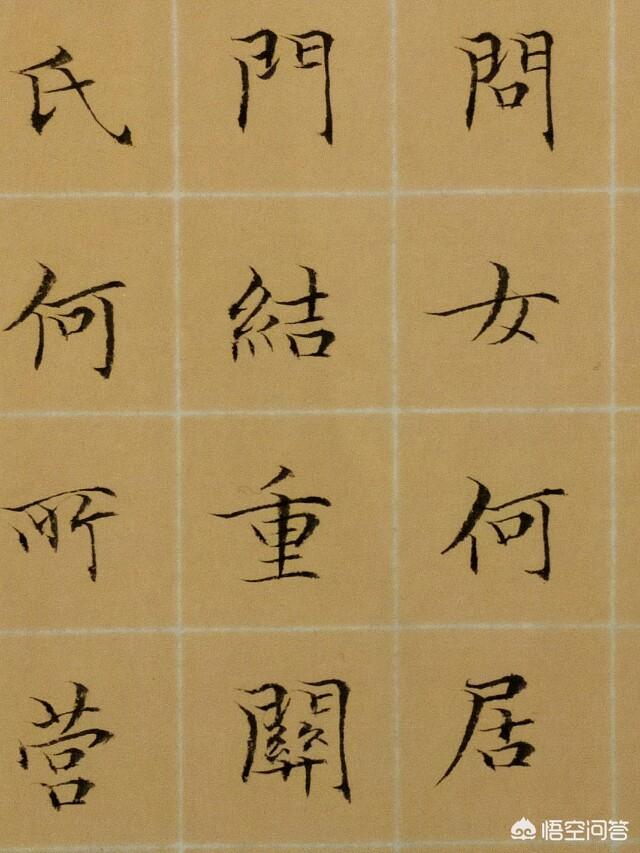 問女何居
門結重關
氏何所营
悟空问答